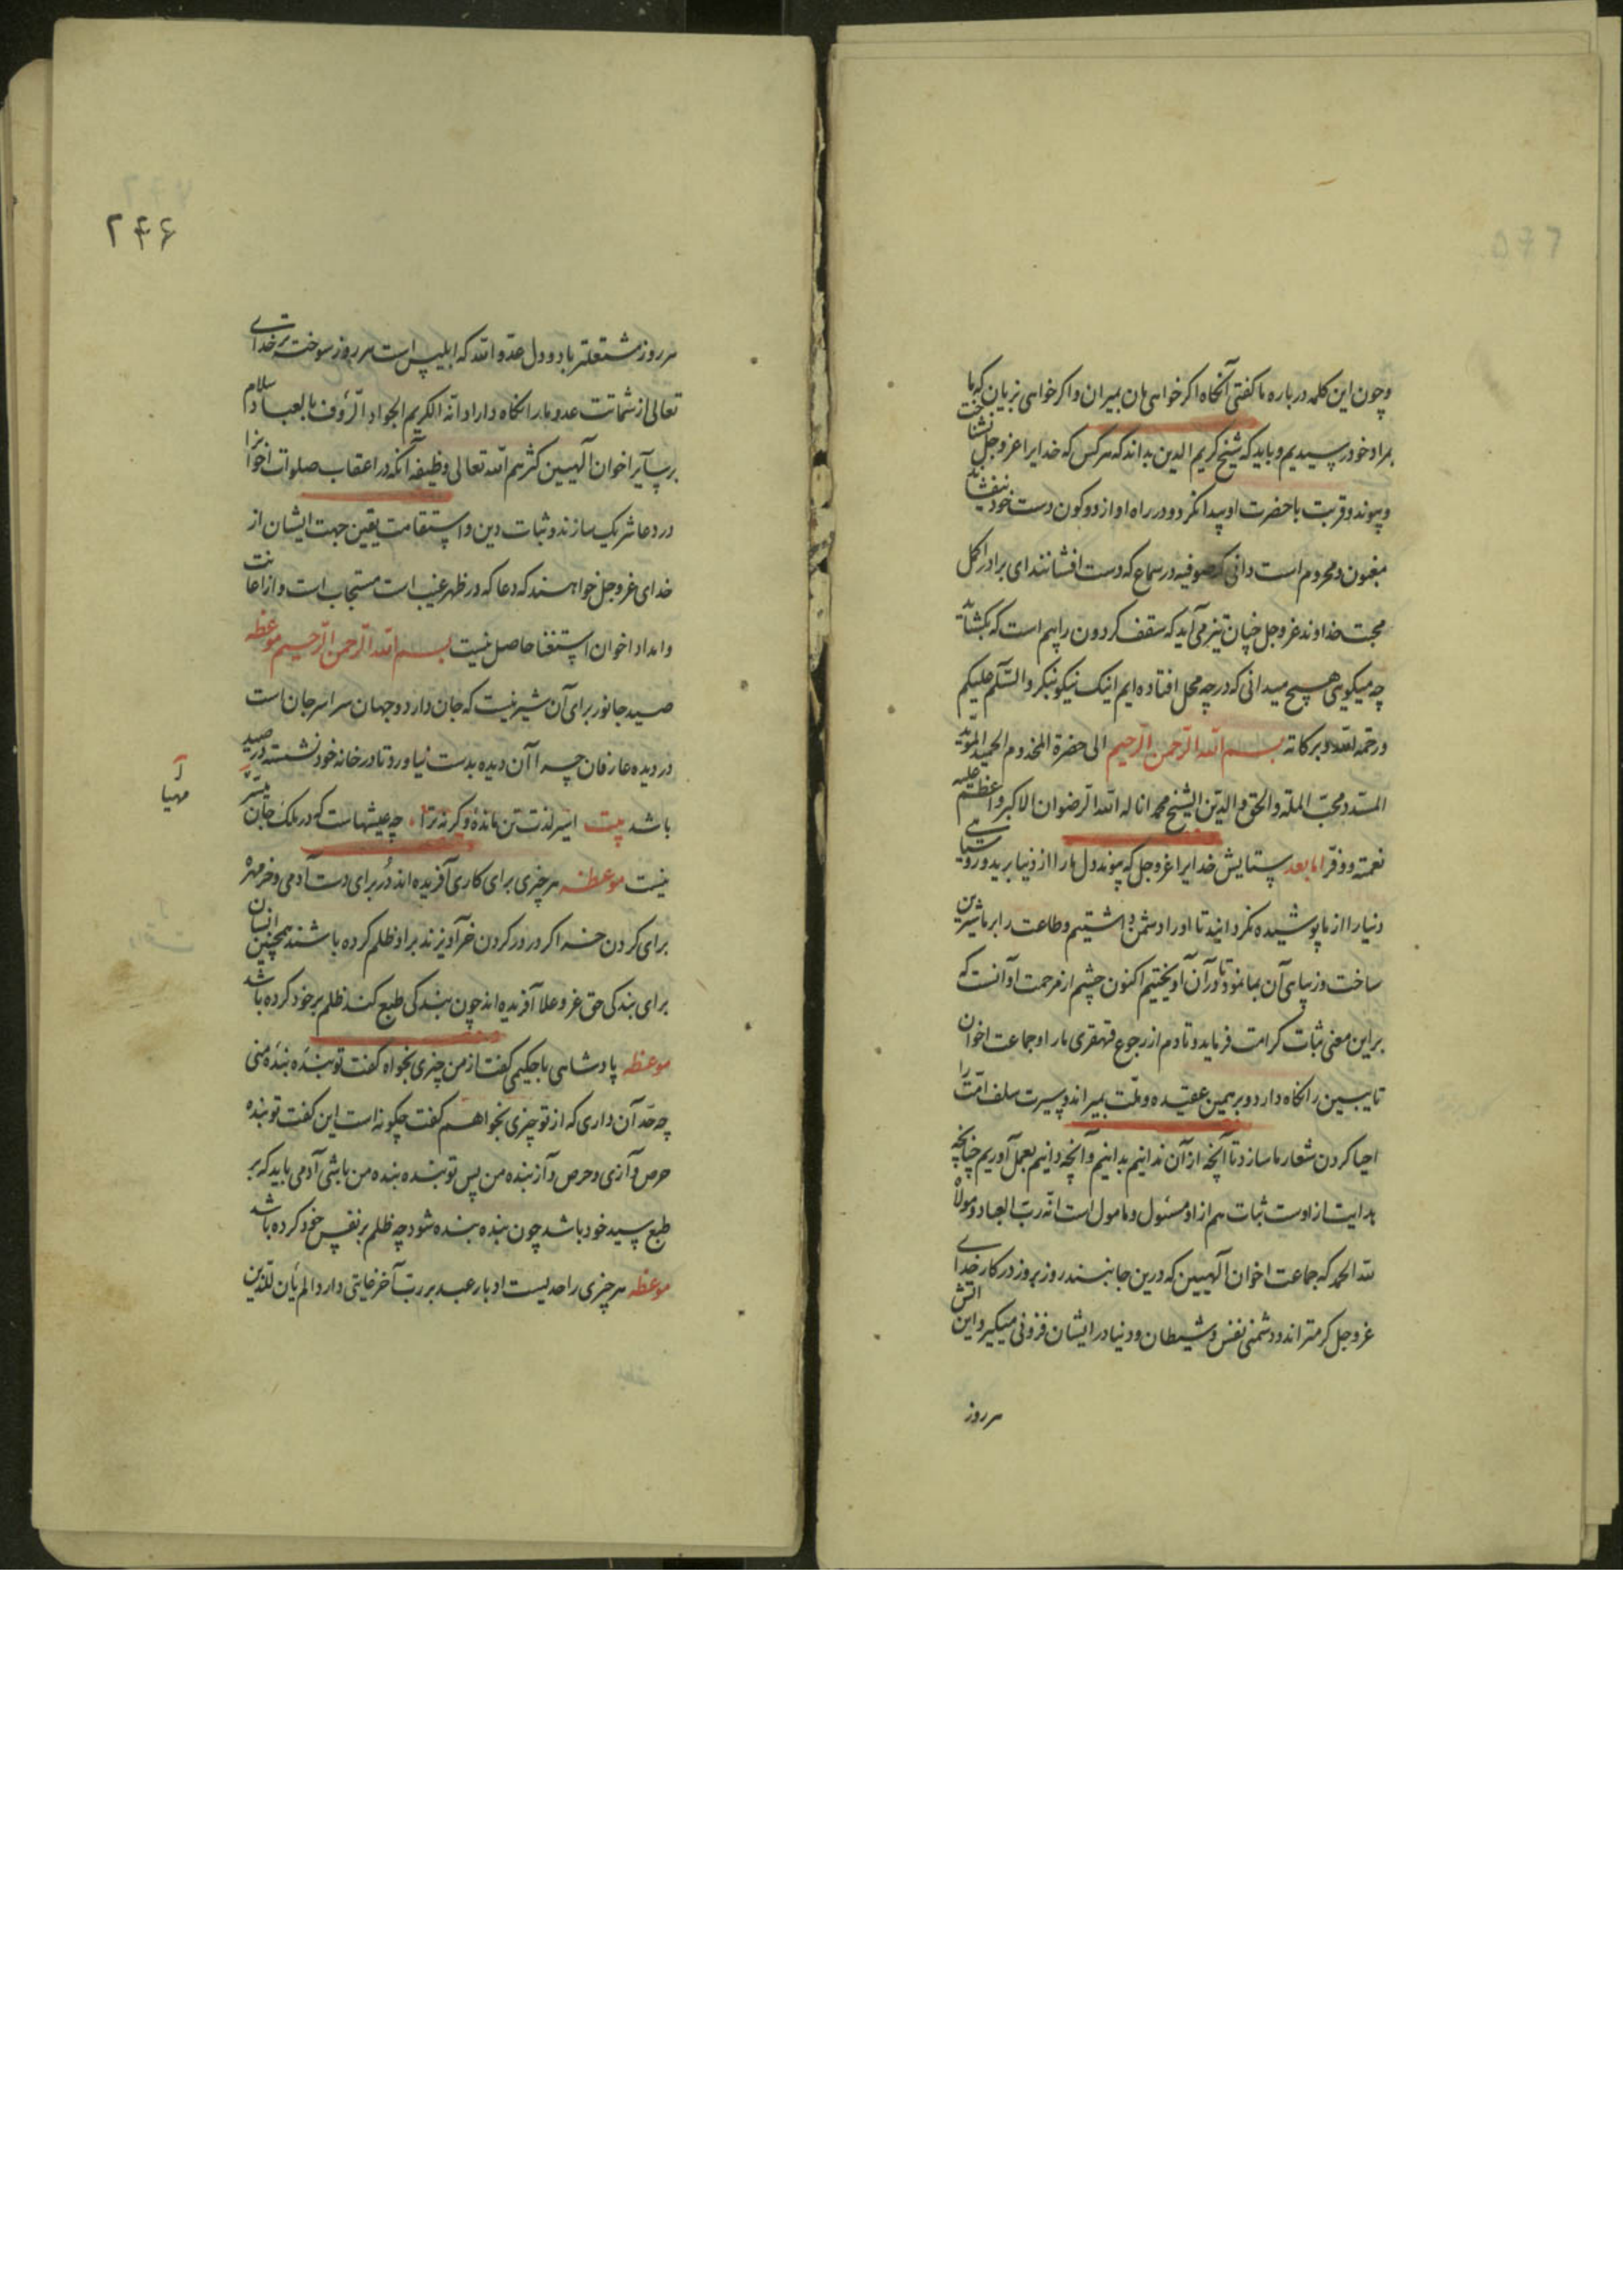 وچون این کلمه درباره ما گفتی آنگاه اگر خواهی مان بمیران واگر خواهی بزیان که ما
بمراد خود رسیدیم و باید که شیخ کریم الدین بداند که هر کس که خدایرا عزوجل نشناخت
وپیوند وقربت با حضرت او پیدا نکرد ودر راه او از دو کون دست خود نیفشاند
مغبون ومحروم است دانی که صوفیه در سماع که دست افشانند ای برادر اکمل
محبت خداوند عزوجل چنان تیز می آید که سقف کردون را بیم است که بکشاید
چه میکویی هیچ میدانی که در چه محل افتاده ایم اینک نیکو نیکر والسلام علیکم
ورحمة الله وبرکاته بسم الله الرحمن الرحیم الی حضرة المخدوم الحمید المؤید
المسدد محب الملة والحق والدین الشیخ محمد اناله الله الرضوان الاکبر واعظم علیه
نعمته ووفر اما بعد ستایش خدایرا عزوجل که پیوند دل مارا از دنیا برید وروسیاهی
دنیا را از ما پوشیده نکردانید تا اورا دشمن داشتیم وطاعت را بر ما شیرین
ساخت وزیبای آن بما نمود تا در آن آویختیم اکنون چشم از مرحمت او آنست که
براین معنی ثبات کرامت فرماید وتا دم از رجوع قهقری ما را وجماعت اخوان
تایبین را نکاه دارد وبر همین عقیده وملت بمیراند وسیرت سلف امت را
احیا کردن شعار ما سازد تا آنچه از آن ندانیم بدانیم وآنچه دانیم بعمل آوریم چنانچه
هدایت از اوست ثبات هم از او مسئول ومامول است انه رب العباد ومولاه
لله الحمد که جماعت اخوان آلهیین که درین جانبند روز بروز در کار خدای
عزوجل کرمتر اند ودشمنی نفس وشیطان ودنیا در ایشان فزونی میکیرد این اتش
هر روز
۲۴۶
هر روز مشتعلتر باد ودل عدو الله که ابلیس است هر روز سوخته تر خدای
تعالی از شماتت عدو ما را نکاه دارد انه الکریم الجواد الرؤف بالعباد سلام
برسایر اخوان آلهیین کثرهم الله تعالی وظیفه آنکه در اعقاب صلوات اخوانرا
در دعا شریک سازند وثبات دین واستقامت یقین جهت ایشان از
خدای عزوجل خواهند که دعا که در ظهر غیب است مستجاب است واز اعانت
وامداد اخوان استغنا حاصل نیست بسم الله الرحمن الرحیم موعظه
صید جانور برای آن شیرینست که جان دارد وجهان سراسر جان است
در دیده عارفان چرا آن دیده بدست نیاورد تا در خانه خود نشسته در صید
آ
مهیا
باشد بیت اسیر لذت تن مانده وکرنه ترا چه عیشهاست که در ملک جان میسر
نیست موعظه هر چیزی برای کاری آفریده اند در برای دست آدمی وخر مهره
برای کردن خر اکر در در کردن خر آویزند بر او ظلم کرده باشند همچنین انسان
برای بندکی حق عز وعلا آفریده اند چون بندکی طبع کند ظلم بر خود کرده باشد
موعظه پادشاهی با حکیمی کفت از من چیزی بخواه کفت تو بنده بنده منی
چه حد آن داری که از تو چیزی بخواهم کفت چکونه است این کفت تو بنده
حرص وآزی وحرص وآز بنده من پس تو بنده بنده من باشی آدمی باید که بر
طبع سید خود باشد چون بنده بنده شود چه ظلم بر نفس خود کرده باشد
موعظه هر چیزی را حدیست ادبار عبد بر رب آخر غایتی دارد الم یأن للذین